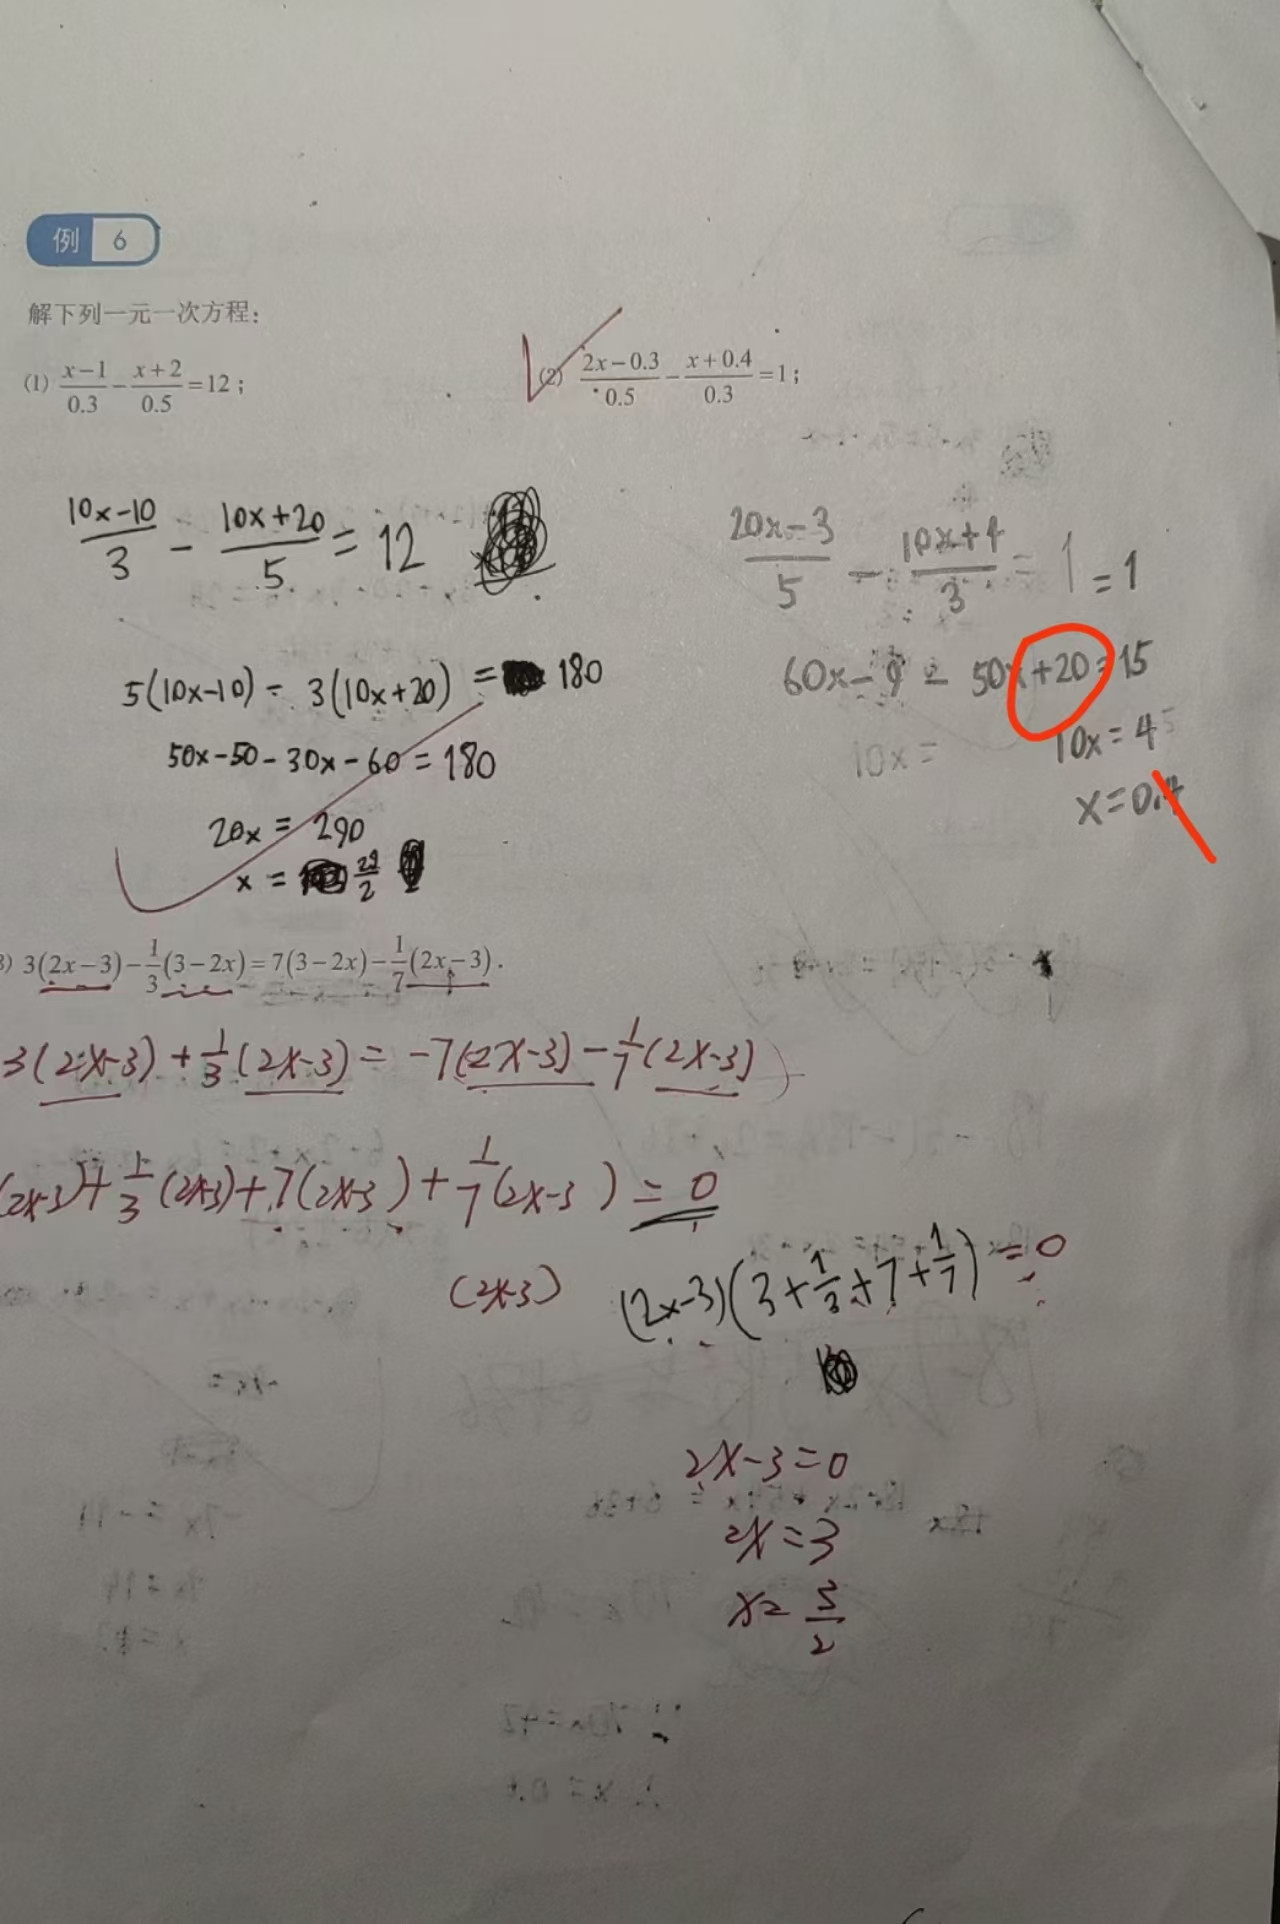 例 6
解下列一元一次方程:
(1) \frac{x-1}{0.3} - \frac{x+2}{0.5} = 12;
(2) \frac{2x-0.3}{0.5} - \frac{x+0.4}{0.3} = 1;
\frac{10x-10}{3} - \frac{10x+20}{5} = 12
5(10x-10) - 3(10x+20) = 180
50x-50-30x-60 = 180
20x = 290
x = \frac{29}{2}
\frac{20x-3}{5} - \frac{10x+4}{3} = 1 = 1
60x-9 - 50x+20 = 15
10x =
10x = 4
x = 0.4
3) 3(2x-3) - \frac{1}{3}(3-2x) = 7(3-2x) - \frac{1}{7}(2x-3).
3(2x-3) + \frac{1}{3}(2x-3) = -7(2x-3) - \frac{1}{7}(2x-3)
(2x-3) + \frac{1}{3}(2x-3) + 7(2x-3) + \frac{1}{7}(2x-3) = 0
(2x-3) (2x-3)(3+\frac{1}{3}+7+\frac{1}{7}) = 0
2x-3=0
2x=3
x=\frac{3}{2}